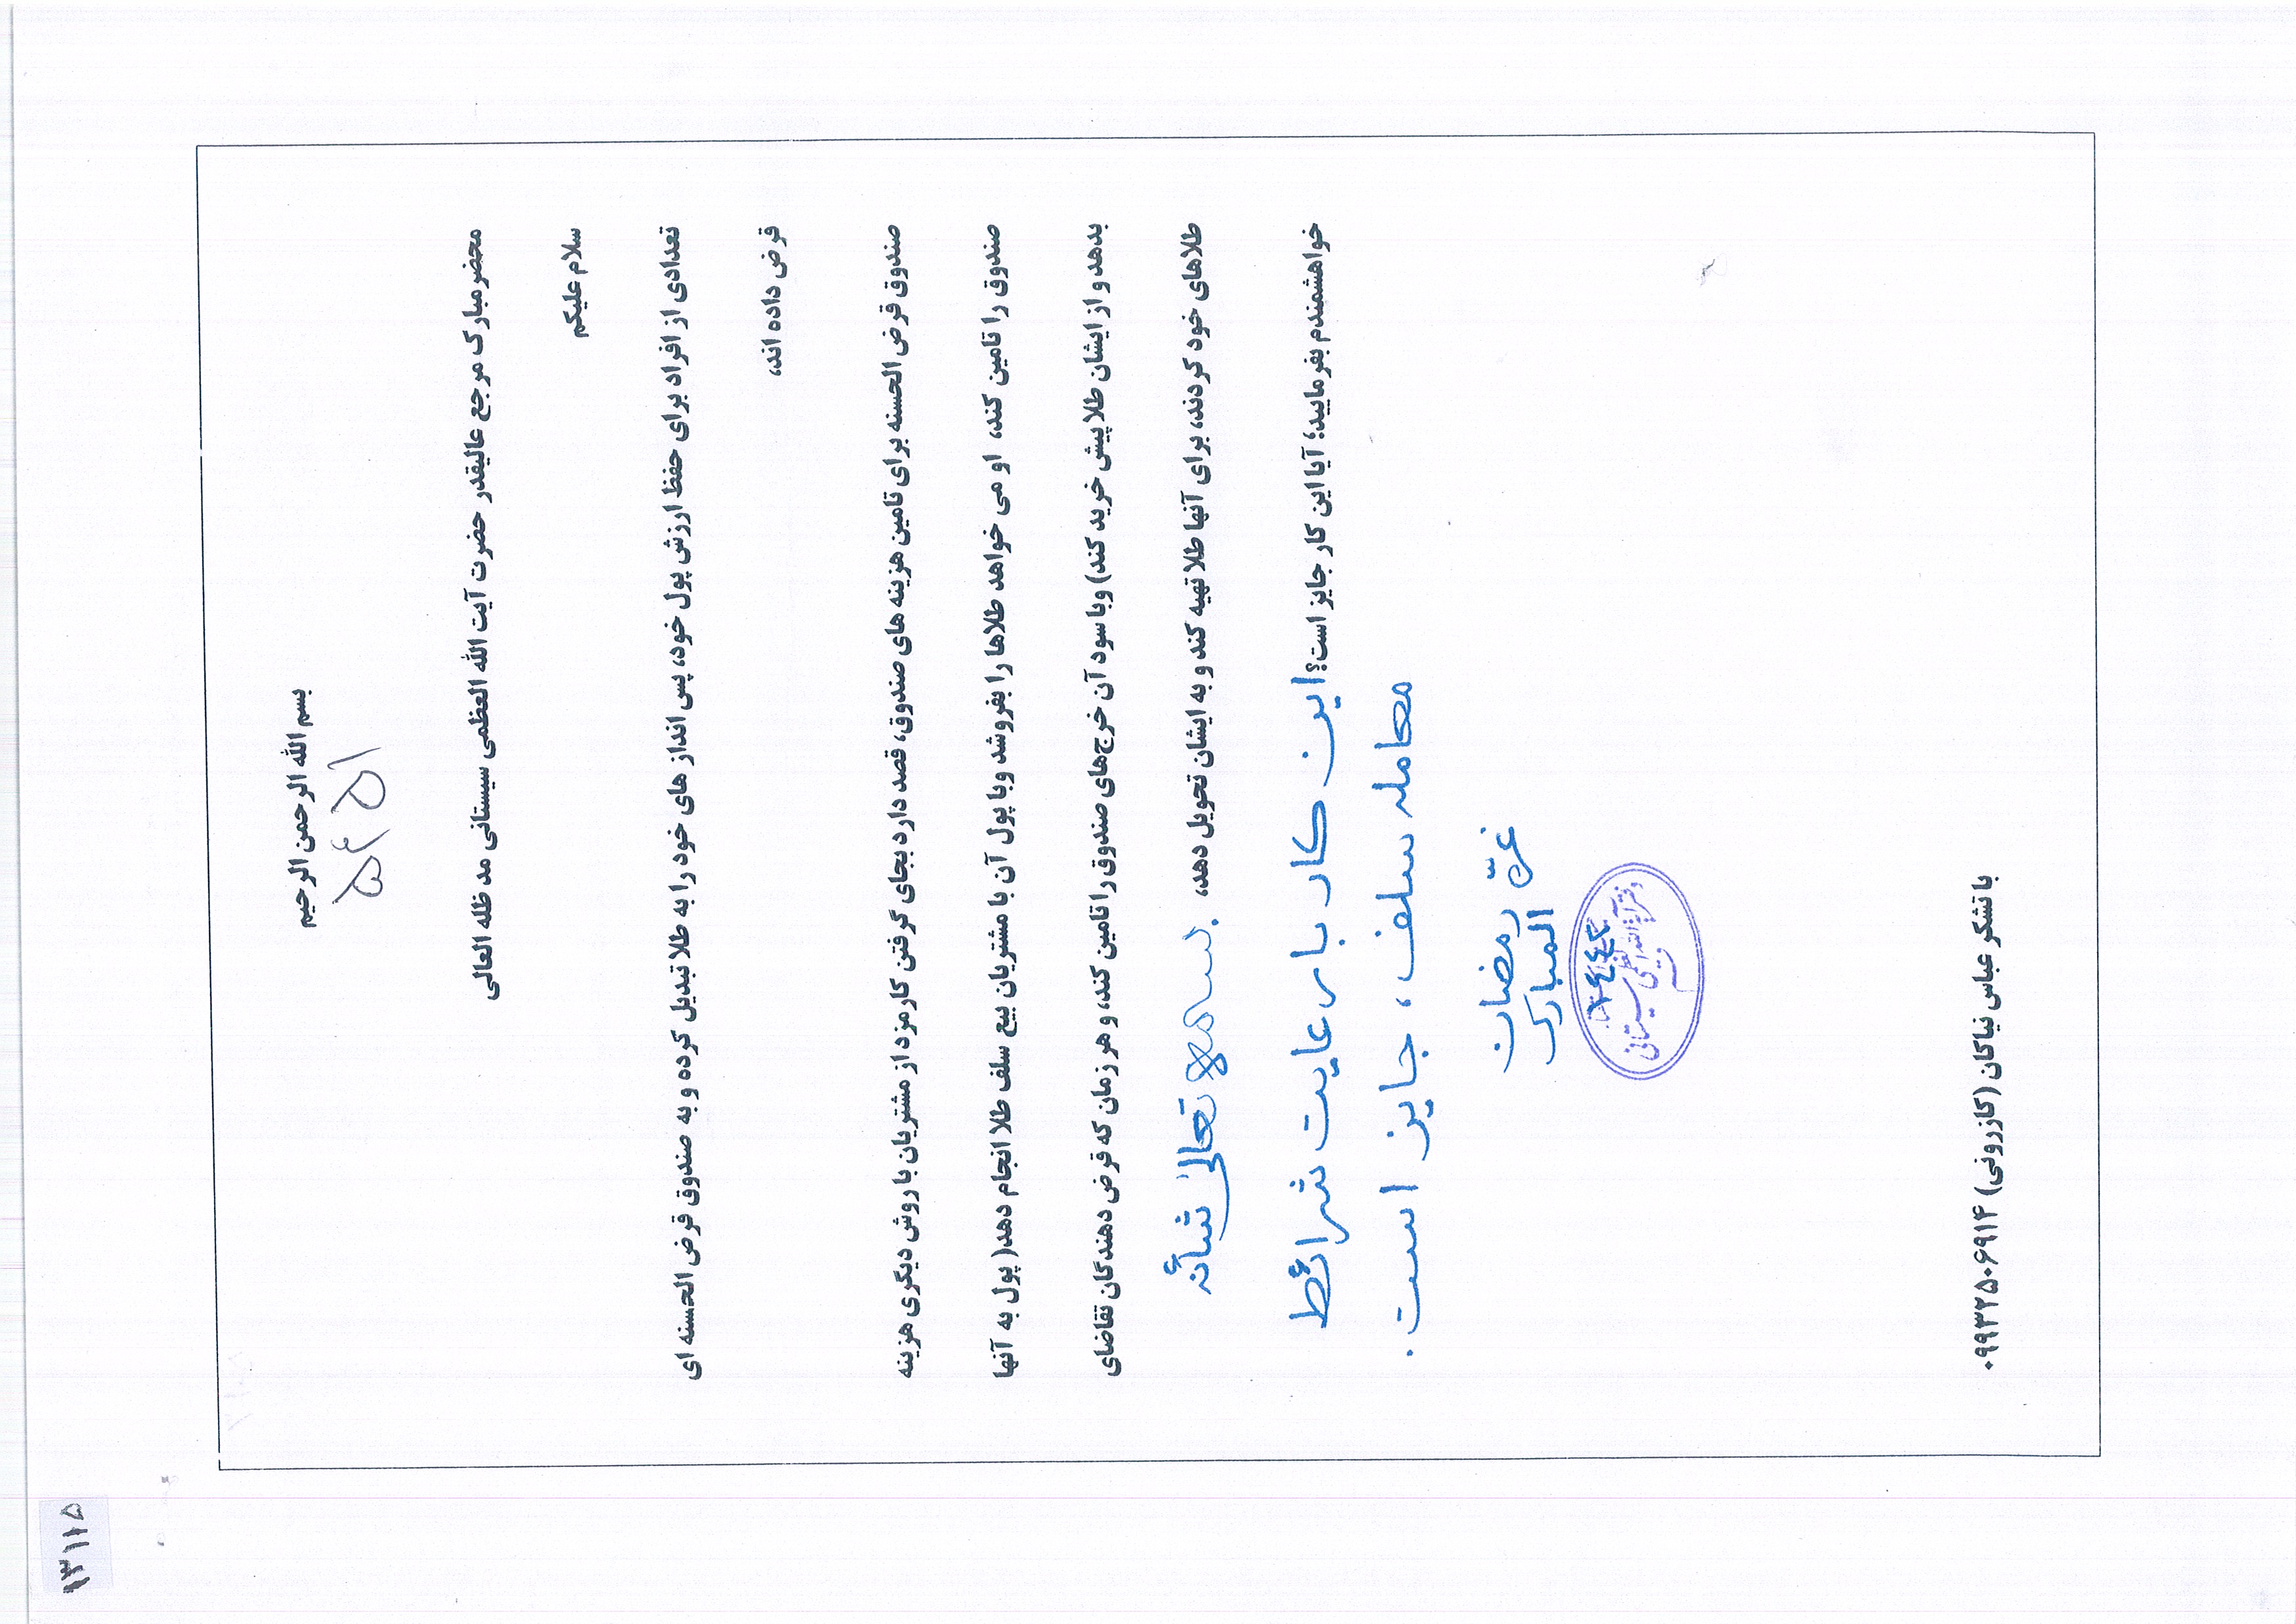 بسم الله الرحمن الرحیم
محضر مبارک مرجع عالیقدر حضرت آیت الله العظمی سیستانی مد ظله العالی
سلام علیکم
تعدادی از افراد برای حفظ ارزش پول خود، پس انداز های خود را به طلا تبدیل کرده و به صندوق قرض الحسنه ای
قرض داده اند،
صندوق قرض الحسنه برای تامین هزینه های صندوق، قصد دارد بجای گرفتن کارمزد از مشتریان با روش دیگری هزینه
صندوق را تامین کند، او می خواهد طلاها را بفروشد وبا پول آن با مشتریان بیع سلف طلا انجام دهد( پول به آنها
بدهد و از ایشان طلا پیش خرید کند) وبا سود آن خرج‌های صندوق را تامین کند، و هر زمان که قرض دهندگان تقاضای
طلاهای خود کردند، برای آنها طلا تهیه کند و به ایشان تحویل دهد،
تعالی شأنه
خواهشمندم بفرمایید؛ آیا این کار جایز است؟
این کار با رعایت شرائط
معامله سلف، جایز است.
غرّة رمضان
المبارک
١٤٤٤
دفتر آیة الله العظمی سیستانی
با تشکر عباس نیاکان (کازرونی) ۰۹۹۳۲۵۰۶۹۱۴
۹۳۱۱۵